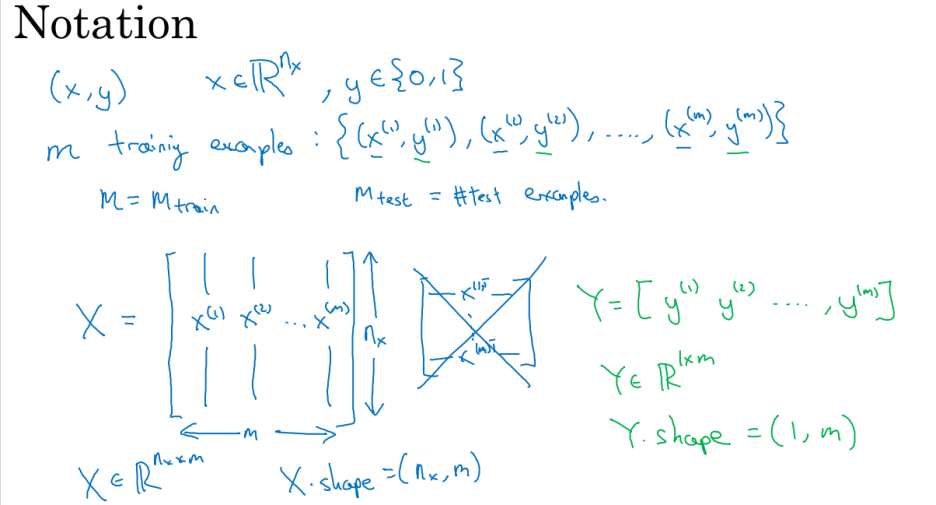 Notation
(x,y) x∈ℝ^{n_x}, y∈{0,1}
m training examples : {(x^{(1)},y^{(1)}), (x^{(2)},y^{(2)}), ...., (x^{(m)},y^{(m)})}
M = M_train M_test = #test examples.
X = [x^{(1)} x^{(2)} ... x^{(m)}] n_x
m
x^{(1)T}
x^{(m)T}
Y = [y^{(1)} y^{(2)} ...., y^{(m)}]
Y∈ℝ^{1×m}
Y.shape = (1, m)
X∈ℝ^{n_x×m} X.shape = (n_x, m)